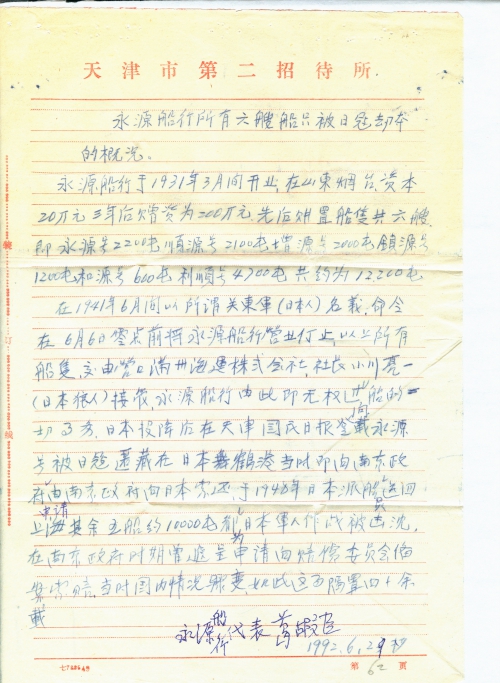 天津市第二招待所
永源船行所有六艘船只被日寇劫夺
的概况。
永源船行于1931年3月间开业,在山东烟台,资本
20万元三年后增资为200万元,先后购置船隻共六艘,
即永源号2200吨順源号2100吨增源号2000吨鎮源号
1200吨和源号600吨利順号4700吨共约为12,200吨
在1941年6月间以所谓关東軍(日本人)名义,命令
在6月6日零点前将永源船行营业停止,以上所有
船隻,交由营口满州海運株式会社,社长小川亮一
(日本狼人)接管,永源船行由此即无权过问船的一
切事务,日本投降后在天津国民日报登載永源
号被日寇匿藏在日本舞鶴港当时即向南京政
府申請由南京政府向日本索还,于1948年日本派船送回
上海其余五船约10000吨都为日本軍人作战被击沉,
在南京政府时期曾追呈申请向赔偿委员会
索赔,当时国内情况骤变,如此这事隔置四十余
載
永源船行代表
1992.6.29
七7 第62页